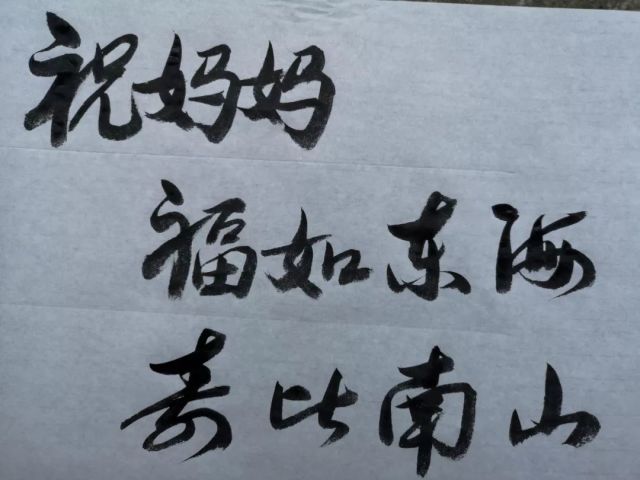 祝妈妈
福如东海
寿比南山